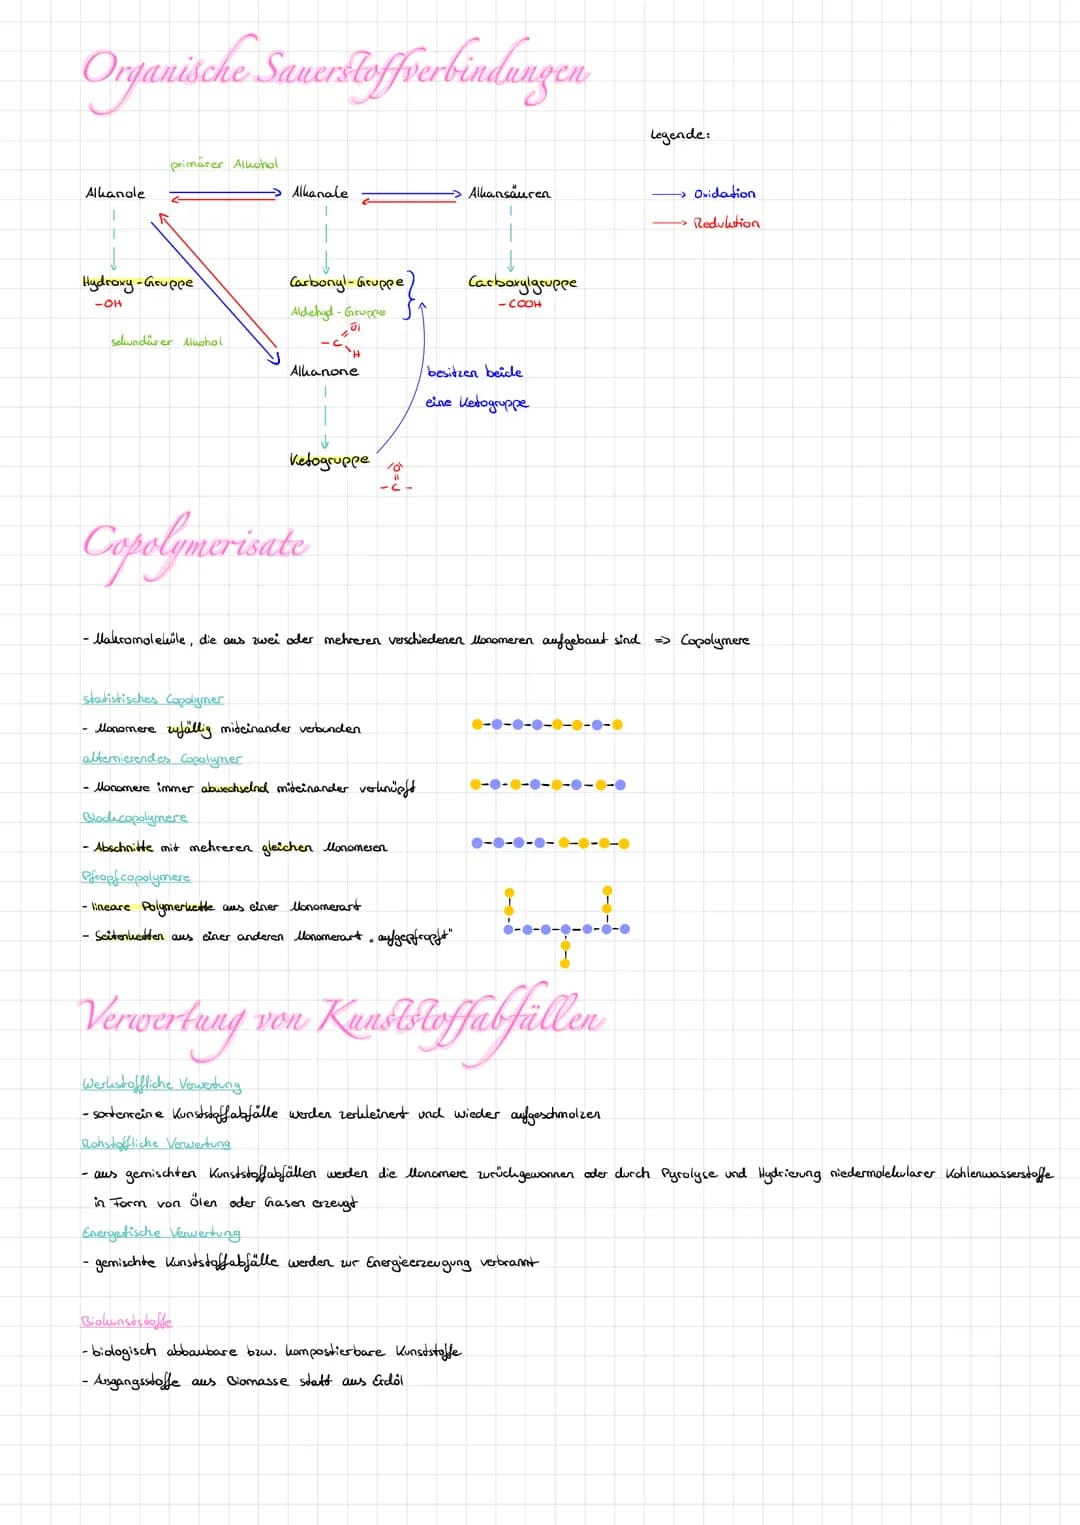 Organische Sauerstoffverbindungen
Legende:
primärer Alkohol
Alkanole
Alkanale
Alkansäuren
Oxidation
Reduktion
Hydroxy-Gruppe
Carbonyl-Gruppe
Carboxylgruppe
-OH
Aldehyd-Gruppe
-COOH
O
-C
H
sekundärer Alkohol
Alkanone
besitzen beide
eine Ketogruppe
Ketogruppe
O
-C-
Copolymerisate
- Makromoleküle, die aus zwei oder mehreren verschiedenen Monomeren aufgebaut sind => Copolymere
statistisches Copolymer
- Monomere zufällig miteinander verbunden
alternierendes Copolymer
- Monomere immer abwechselnd miteinander verknüpft
Blockcopolymere
- Abschnitte mit mehreren gleichen Monomeren
Pfropfcopolymere
- lineare Polymerkette aus einer Monomerart
- Seitenketten aus einer anderen Monomerart „aufgepfropft"
Verwertung von Kunststoffabfällen
Werkstoffliche Verwertung
- sortenreine Kunststoffabfälle werden zerkleinert und wieder aufgeschmolzen
Rohstoffliche Verwertung
- aus gemischten Kunststoffabfällen werden die Monomere zurückgewonnen oder durch Pyrolyse und Hydrierung niedermolekularer Kohlenwasserstoffe
in Form von Ölen oder Gasen erzeugt
Energetische Verwertung
- gemischte Kunststoffabfälle werden zur Energieerzeugung verbrannt
Biokunststoffe
- biologisch abbaubare bzw. kompostierbare Kunststoffe
- Ausgangsstoffe aus Biomasse statt aus Erdöl